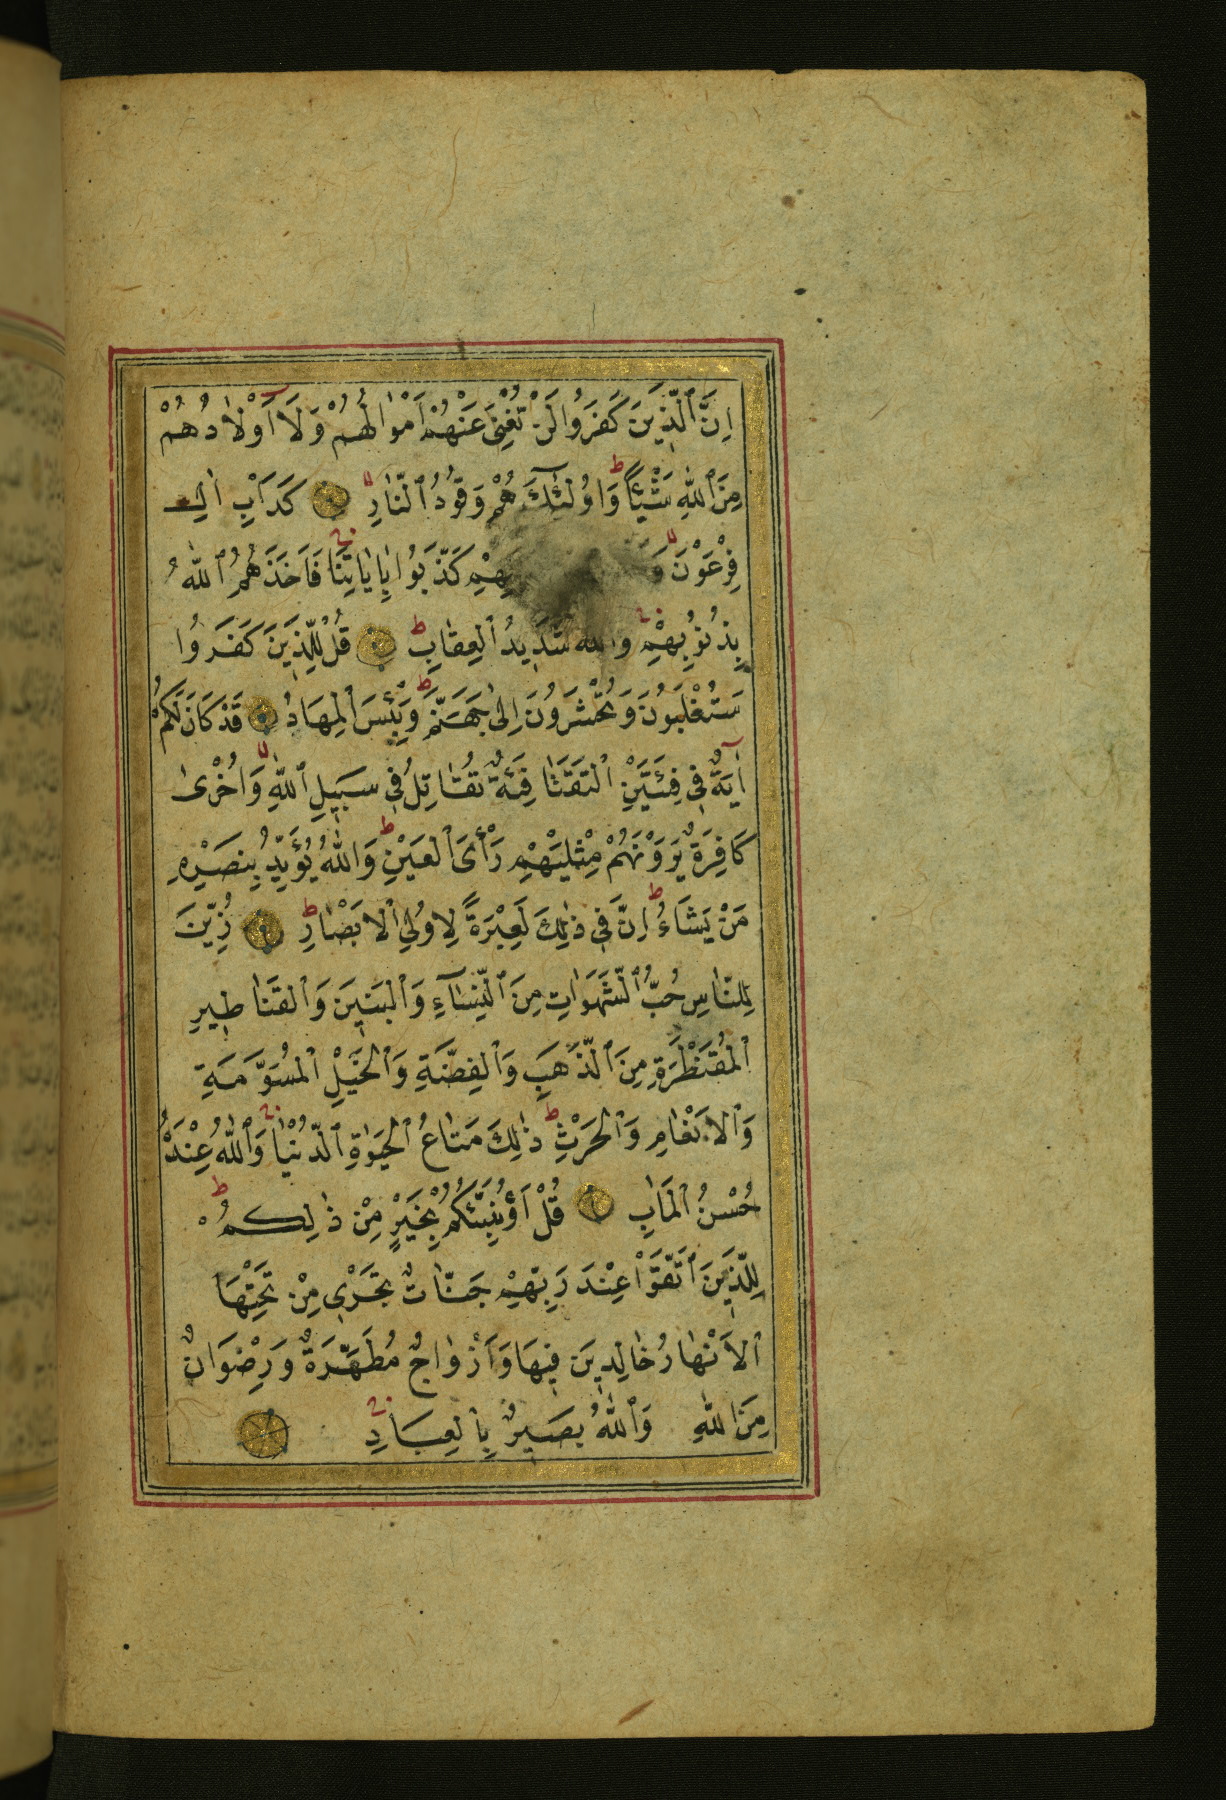 اِنَّ ٱلَّذِينَ كَفَرُوا لَنْ تُغْنِيَ عَنْهُمْ اَمْوَالُهُمْ وَلَا اَوْلَادُهُمْ
مِنَ ٱللّٰهِ شَيْئًا ط وَاُولٰئِكَ هُمْ وَقُودُ ٱلنَّارِ لا كَدَاْبِ اٰلِ
فِرْعَوْنَ لا وَ بْلِهِمْ كَذَّبُوا بِاٰيَاتِنَا فَاَخَذَهُمُ ٱللّٰهُ
بِذُنُوبِهِمْ وَٱللّٰهُ شَدِيدُ ٱلْعِقَابِ ط قُلْ لِلَّذِينَ كَفَرُوا
سَتُغْلَبُونَ وَتُحْشَرُونَ اِلٰى جَهَنَّمَ ط وَبِئْسَ ٱلْمِهَادُ قَدْ كَانَ لَكُمْ
اٰيَةٌ فِي فِئَتَيْنِ ٱلْتَقَتَا فِئَةٌ تُقَاتِلُ فِي سَبِيلِ ٱللّٰهِ وَاُخْرٰى
كَافِرَةٌ يَرَوْنَهُمْ مِثْلَيْهِمْ رَأْىَ ٱلْعَيْنِ ط وَٱللّٰهُ يُؤَيِّدُ بِنَصْرِهِ
مَنْ يَشَاءُ ط اِنَّ فِي ذٰلِكَ لَعِبْرَةً لِاُولِي ٱلْاَبْصَارِ ط زُيِّنَ
لِلنَّاسِ حُبُّ ٱلشَّهَوَاتِ مِنَ ٱلنِّسَآءِ وَٱلْبَنِينَ وَٱلْقَنَاطِيرِ
ٱلْمُقَنْطَرَةِ مِنَ ٱلذَّهَبِ وَٱلْفِضَّةِ وَٱلْخَيْلِ ٱلْمُسَوَّمَةِ
وَٱلْاَنْعَامِ وَٱلْحَرْثِ ط ذٰلِكَ مَتَاعُ ٱلْحَيٰوةِ ٱلدُّنْيَا وَٱللّٰهُ عِنْدَهُ
حُسْنُ ٱلْمَاٰبِ قُلْ اَؤُنَبِّئُكُمْ بِخَيْرٍ مِنْ ذٰلِكُمْ ط
لِلَّذِينَ ٱتَّقَوْا عِنْدَ رَبِّهِمْ جَنَّاتٌ تَجْرِي مِنْ تَحْتِهَا
ٱلْاَنْهَارُ خَالِدِينَ فِيهَا وَاَزْوَاجٌ مُطَهَّرَةٌ وَرِضْوَانٌ
مِنَ ٱللّٰهِ وَٱللّٰهُ بَصِيرٌ بِالْعِبَادِ